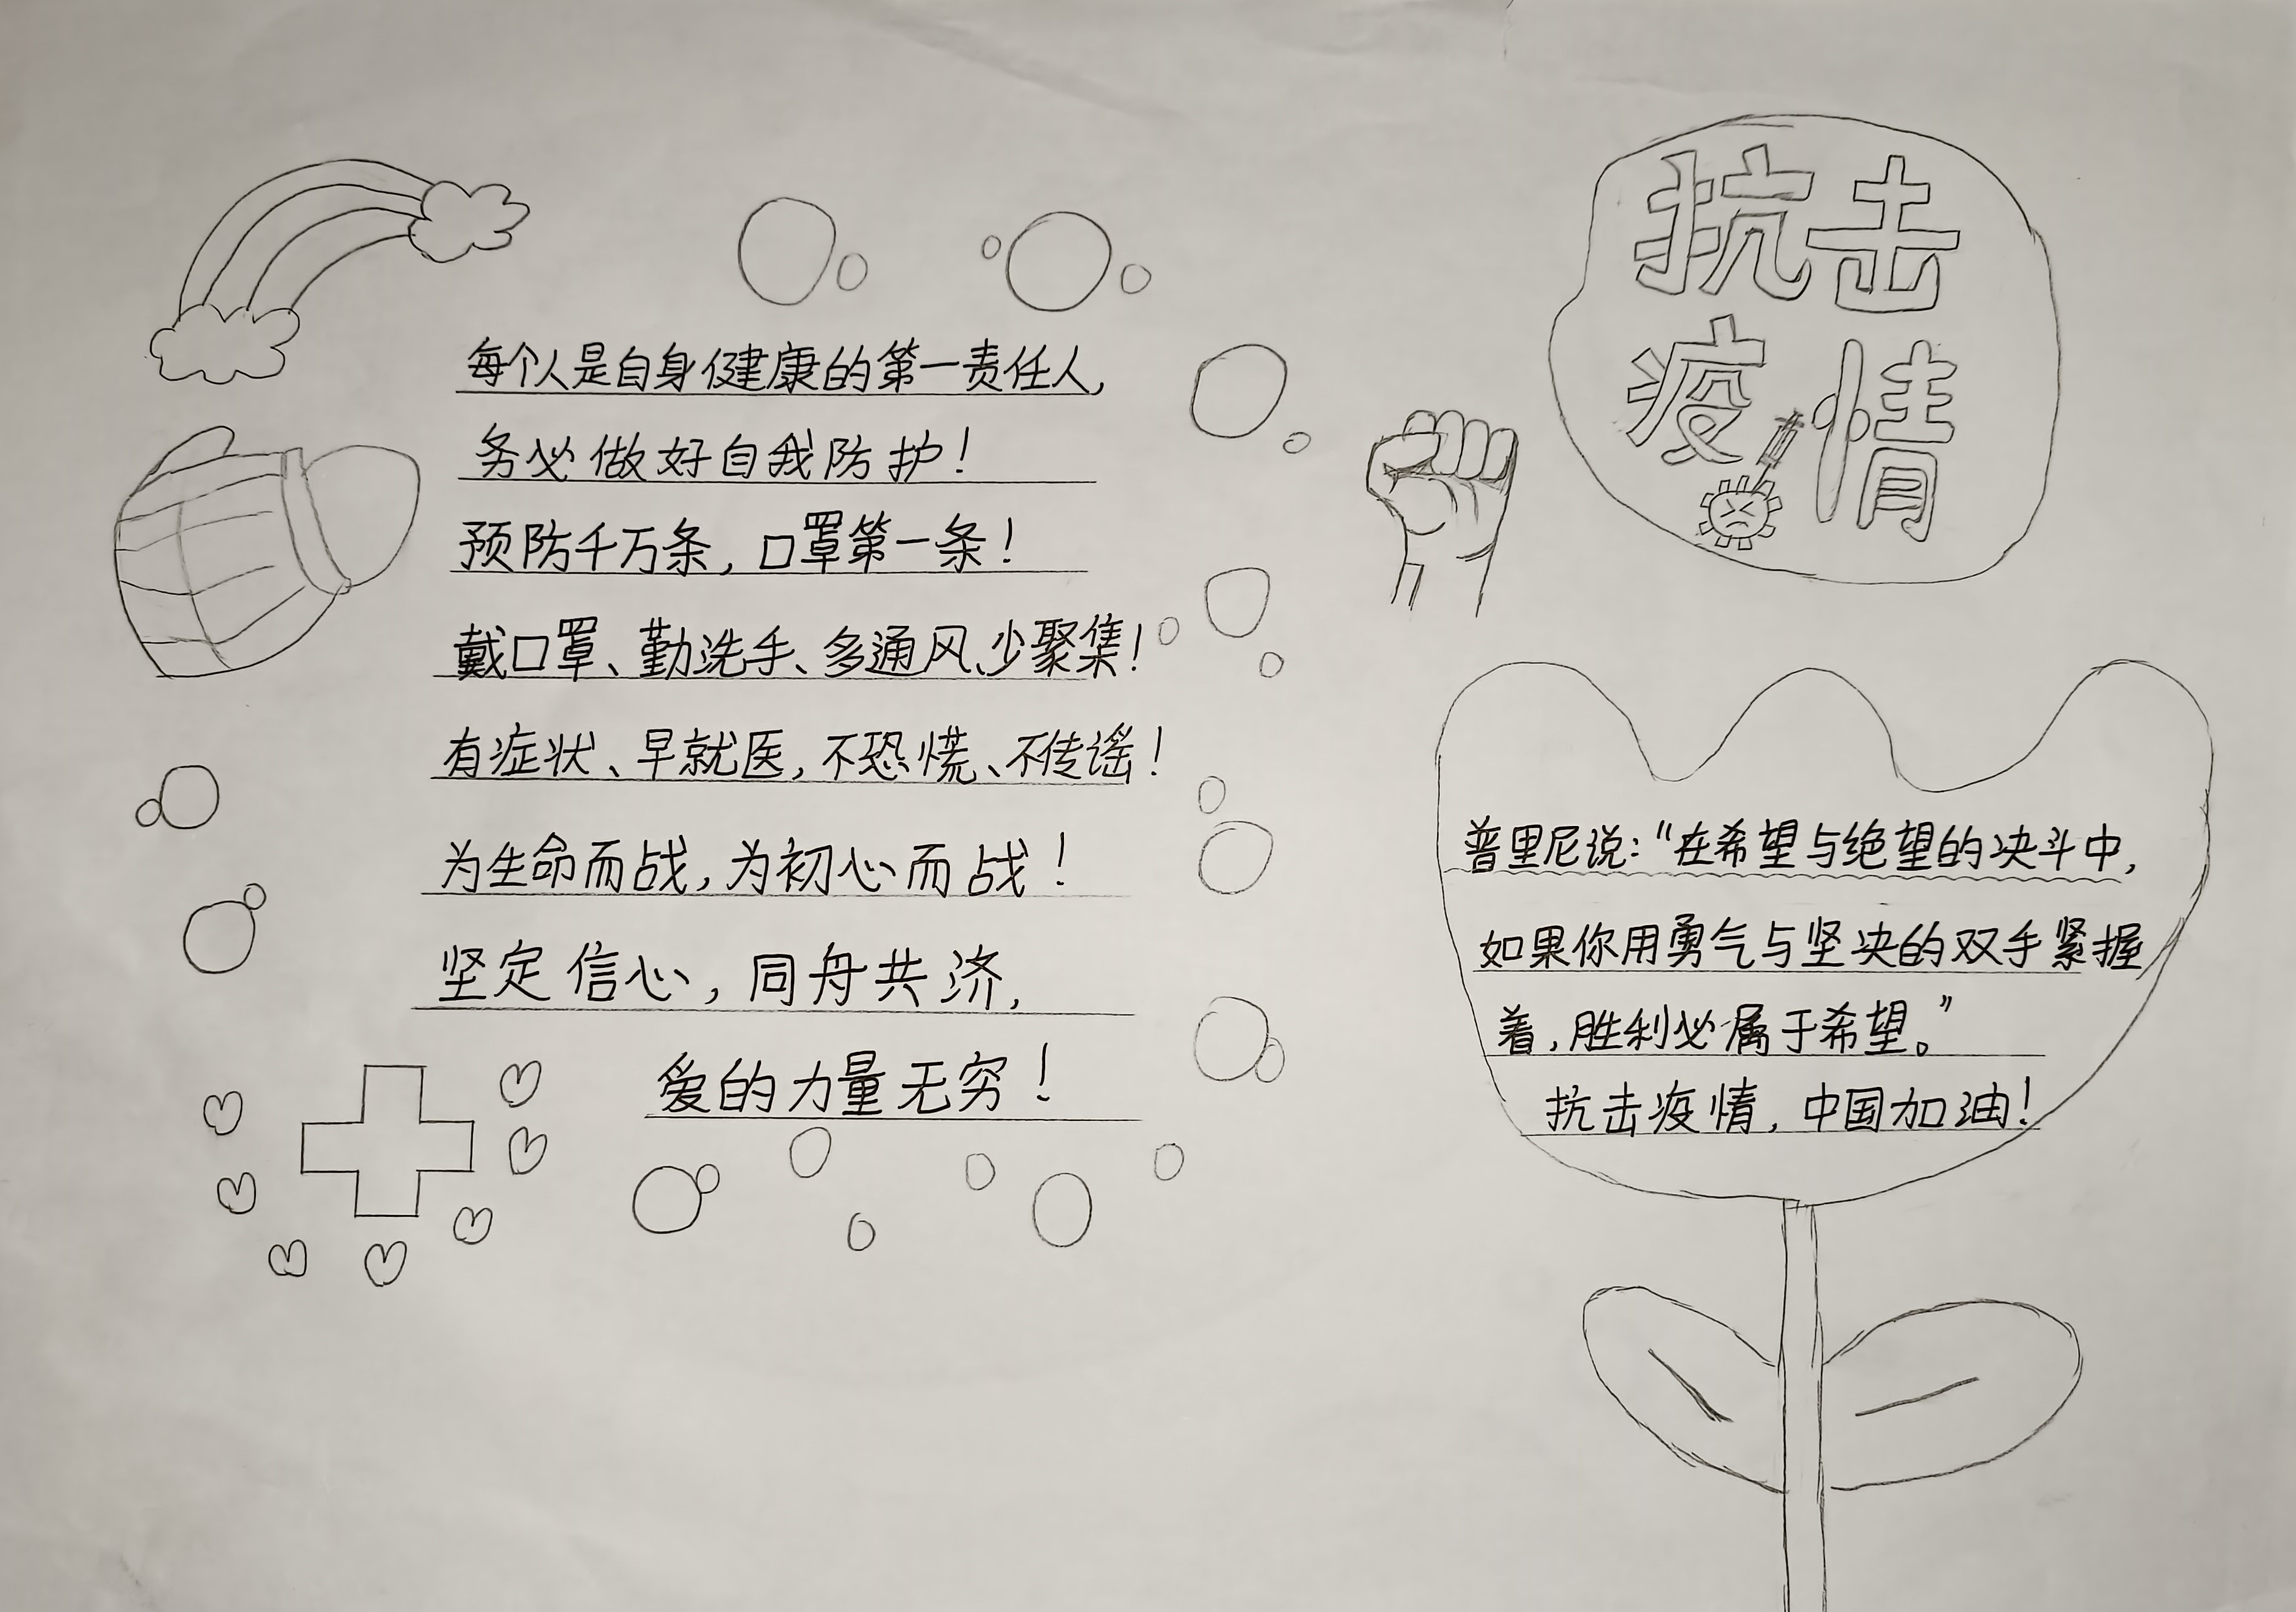 抗击
疫情
每个人是自身健康的第一责任人,
务必做好自我防护!
预防千万条,口罩第一条!
戴口罩、勤洗手、多通风、少聚集!
有症状、早就医,不恐慌、不传谣!
为生命而战,为初心而战!
坚定信心,同舟共济,
爱的力量无穷!
普里尼说:“在希望与绝望的决斗中,
如果你用勇气与坚决的双手紧握
着,胜利必属于希望。”
抗击疫情,中国加油!